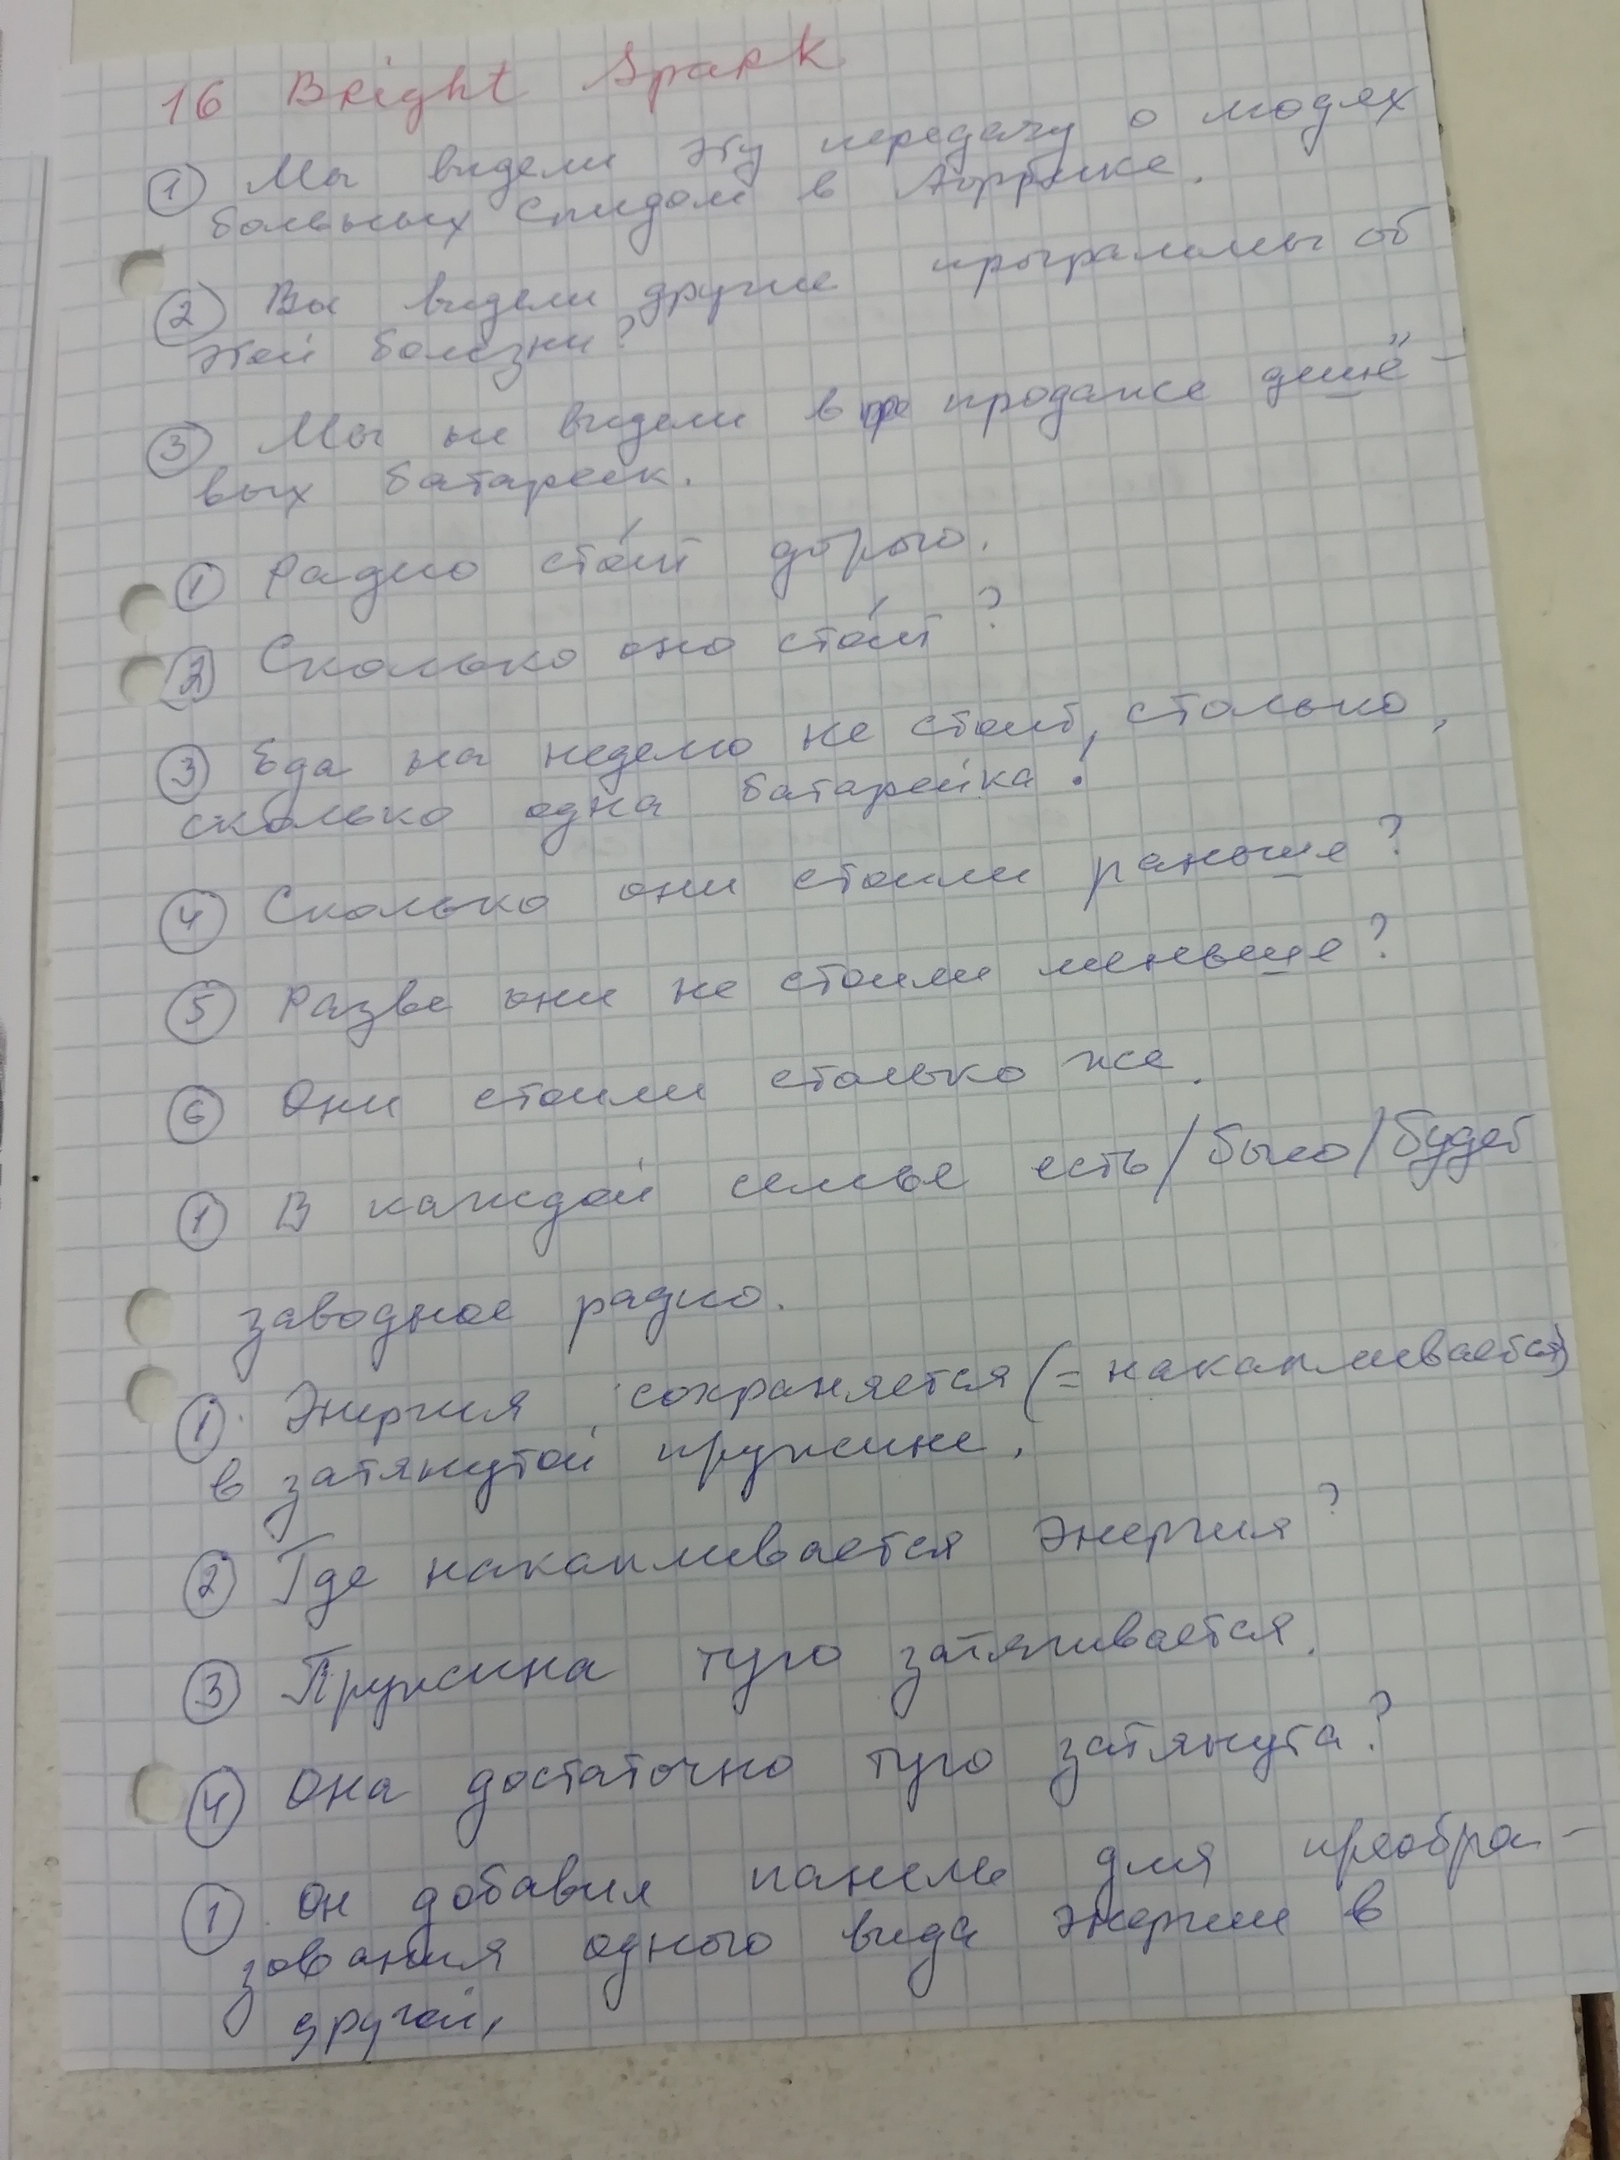 16 Bright Spark
① Мы видели эту передачу о людях
больных Спидом в Африке.
② Вы видели другие программы об
этой болезни?
③ Мы не видели в продаже дешё-
вых батареек.
① Радио сто́ит дорого.
② Сколько оно сто́ит?
③ Еда на неделю не стоит, столько,
сколько одна батарейка!
④ Сколько они стоили раньше?
⑤ Разве они не стоили меньше?
⑥ Они стоили столько же.
① В каждой семье есть/было/будет
заводное радио.
① Энергия сохраняется (= накапливается)
в затянутой пружине.
② Где накапливается энергия?
③ Пружина туго затягивается.
④ Она достаточно туго затянута?
① Он добавил панель для преобра-
зования одного вида энергии в
другой,